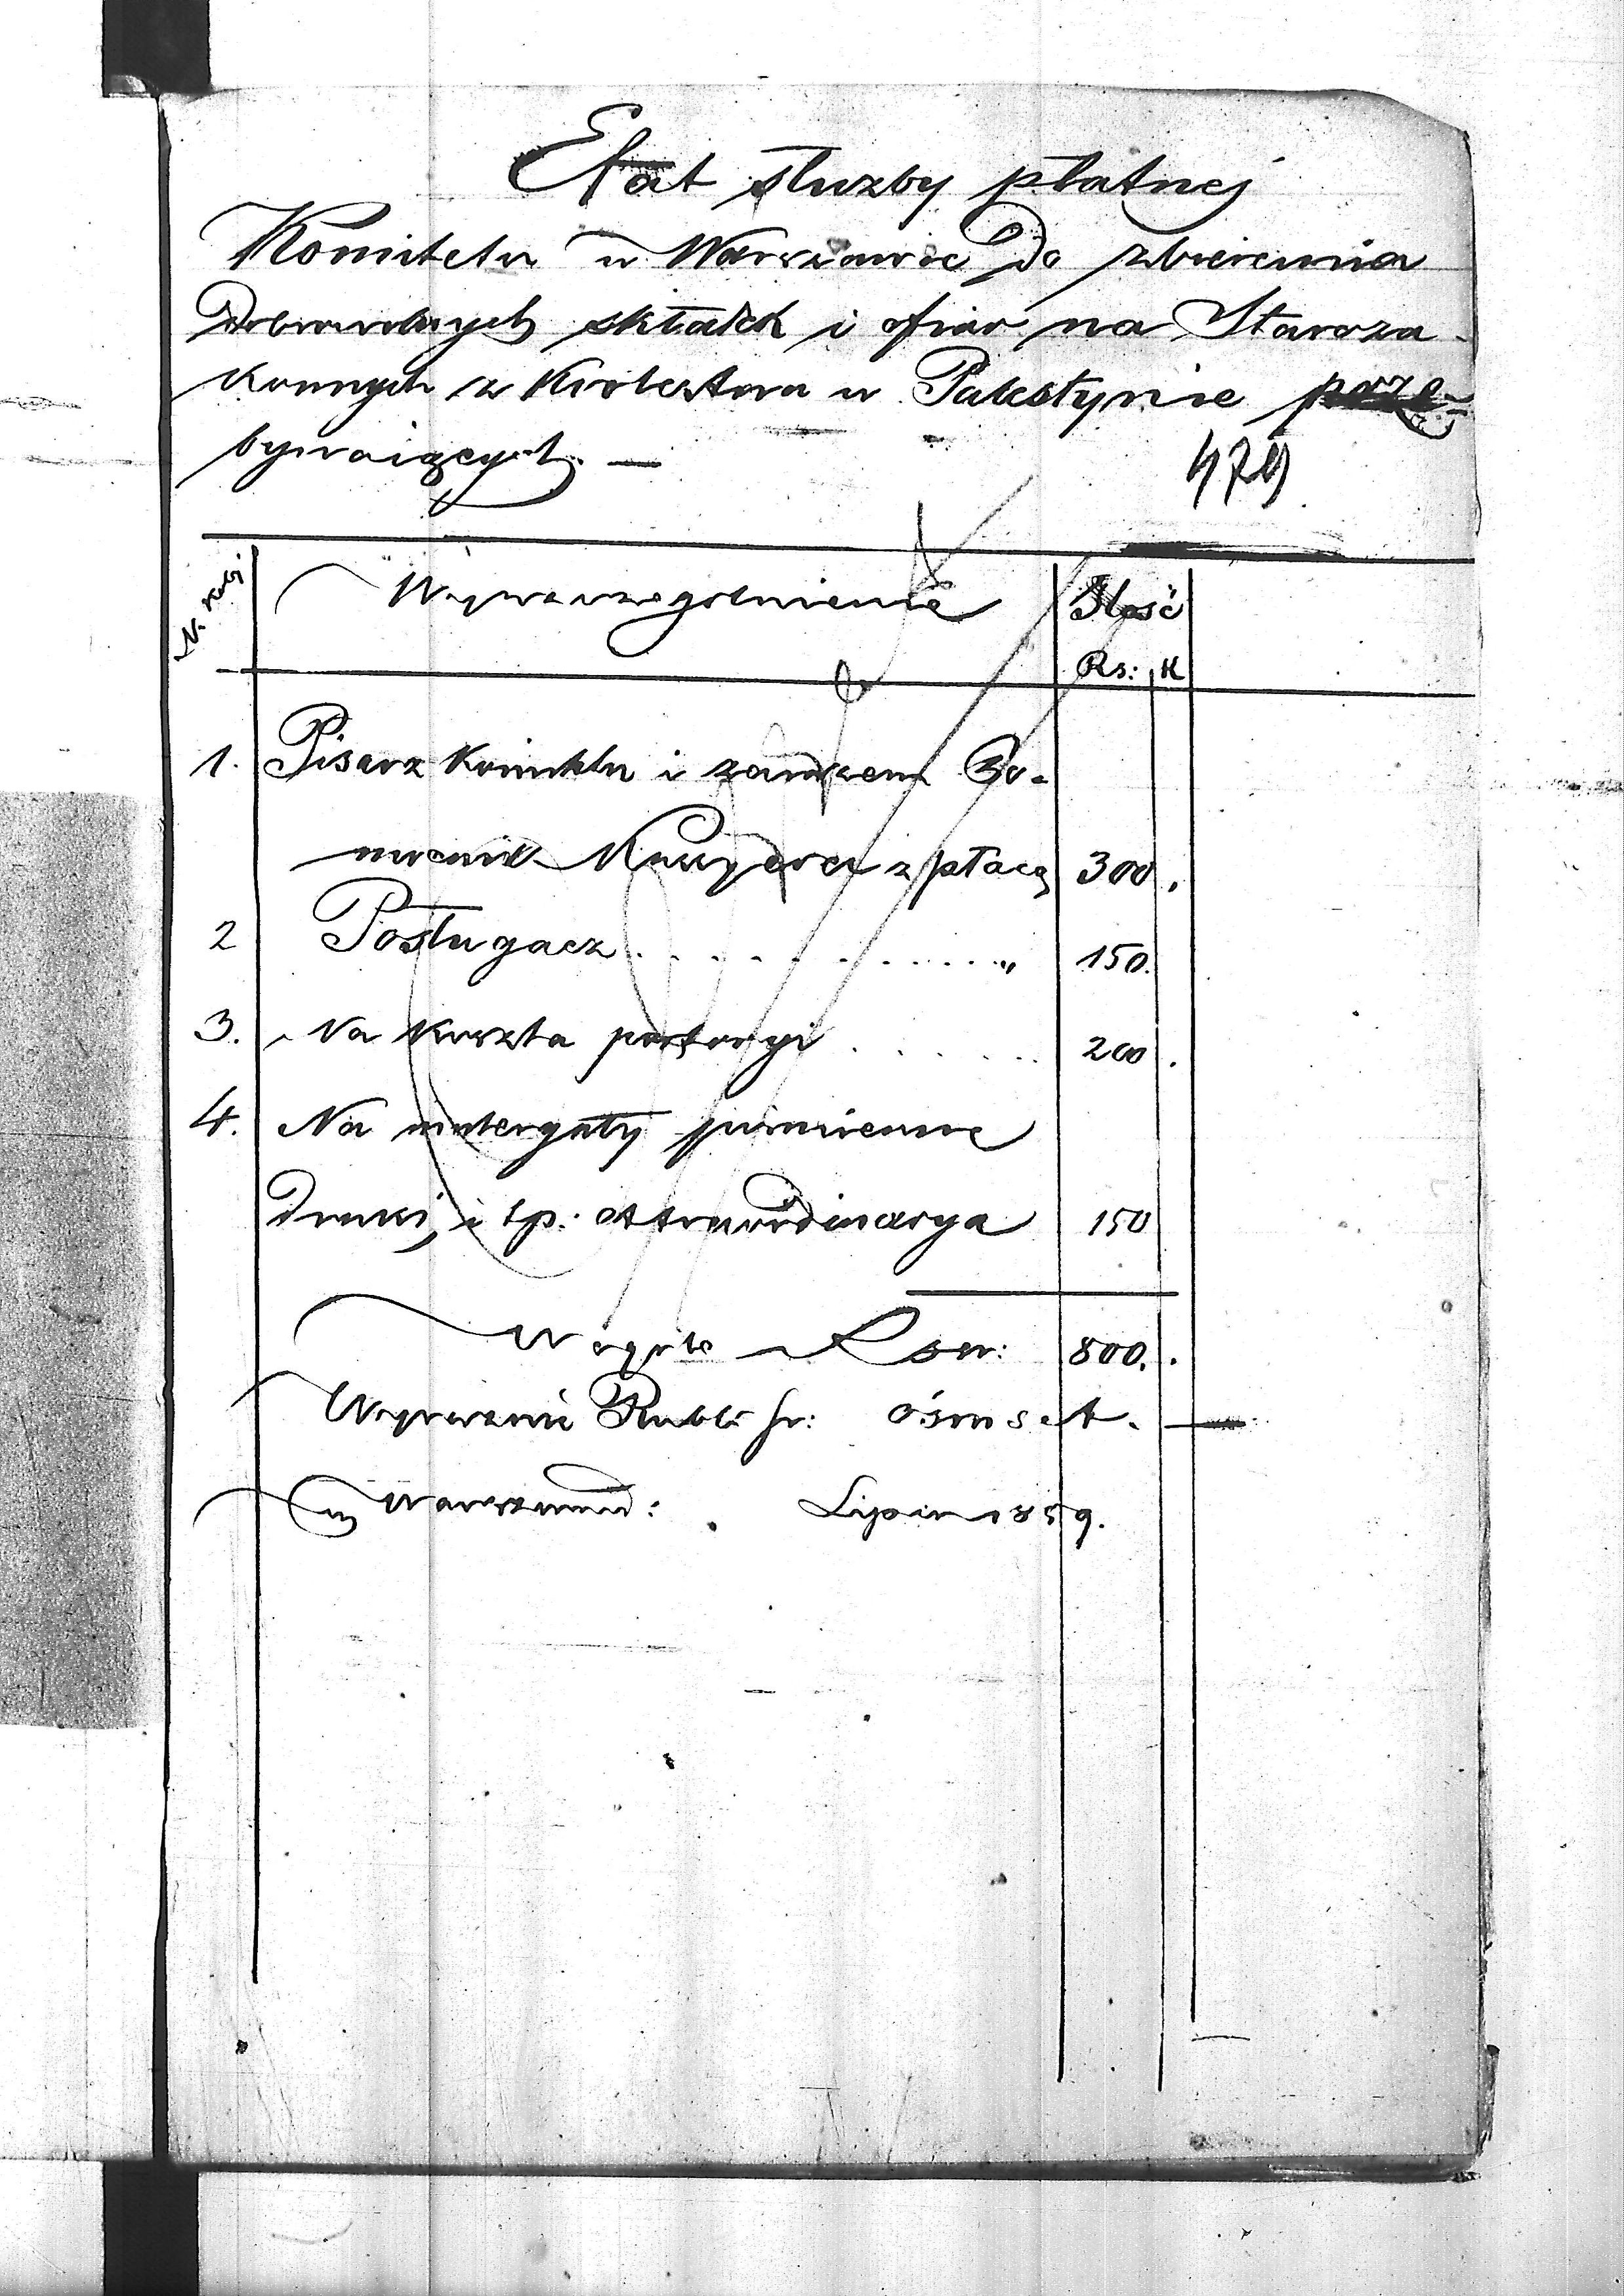 Etat służby płatnej
Komitetu w Warszawie do zbierania
dobrowolnych składek i ofiar na Staroza-
konnych z Królestwa w Palestynie prze-
bywaiących. —
479
N. Kolej
Wyszczególnienie
Ilość
Rs: K
1. Pisarz Komitetu i zarazem Po-
mocnik Kassyera z płacą 300.
2 Posługacz . . . . . . . . . . . " 150.
3. Na koszta portoryi . . . . . . 200.
4. Na materyały piśmienne
Druki, i tp. extraordinarya 150
W ogóle Rsr: 800.
Wyraźnie Rubli sr: ośmset. —
w Warszawie: Lipca 1859.